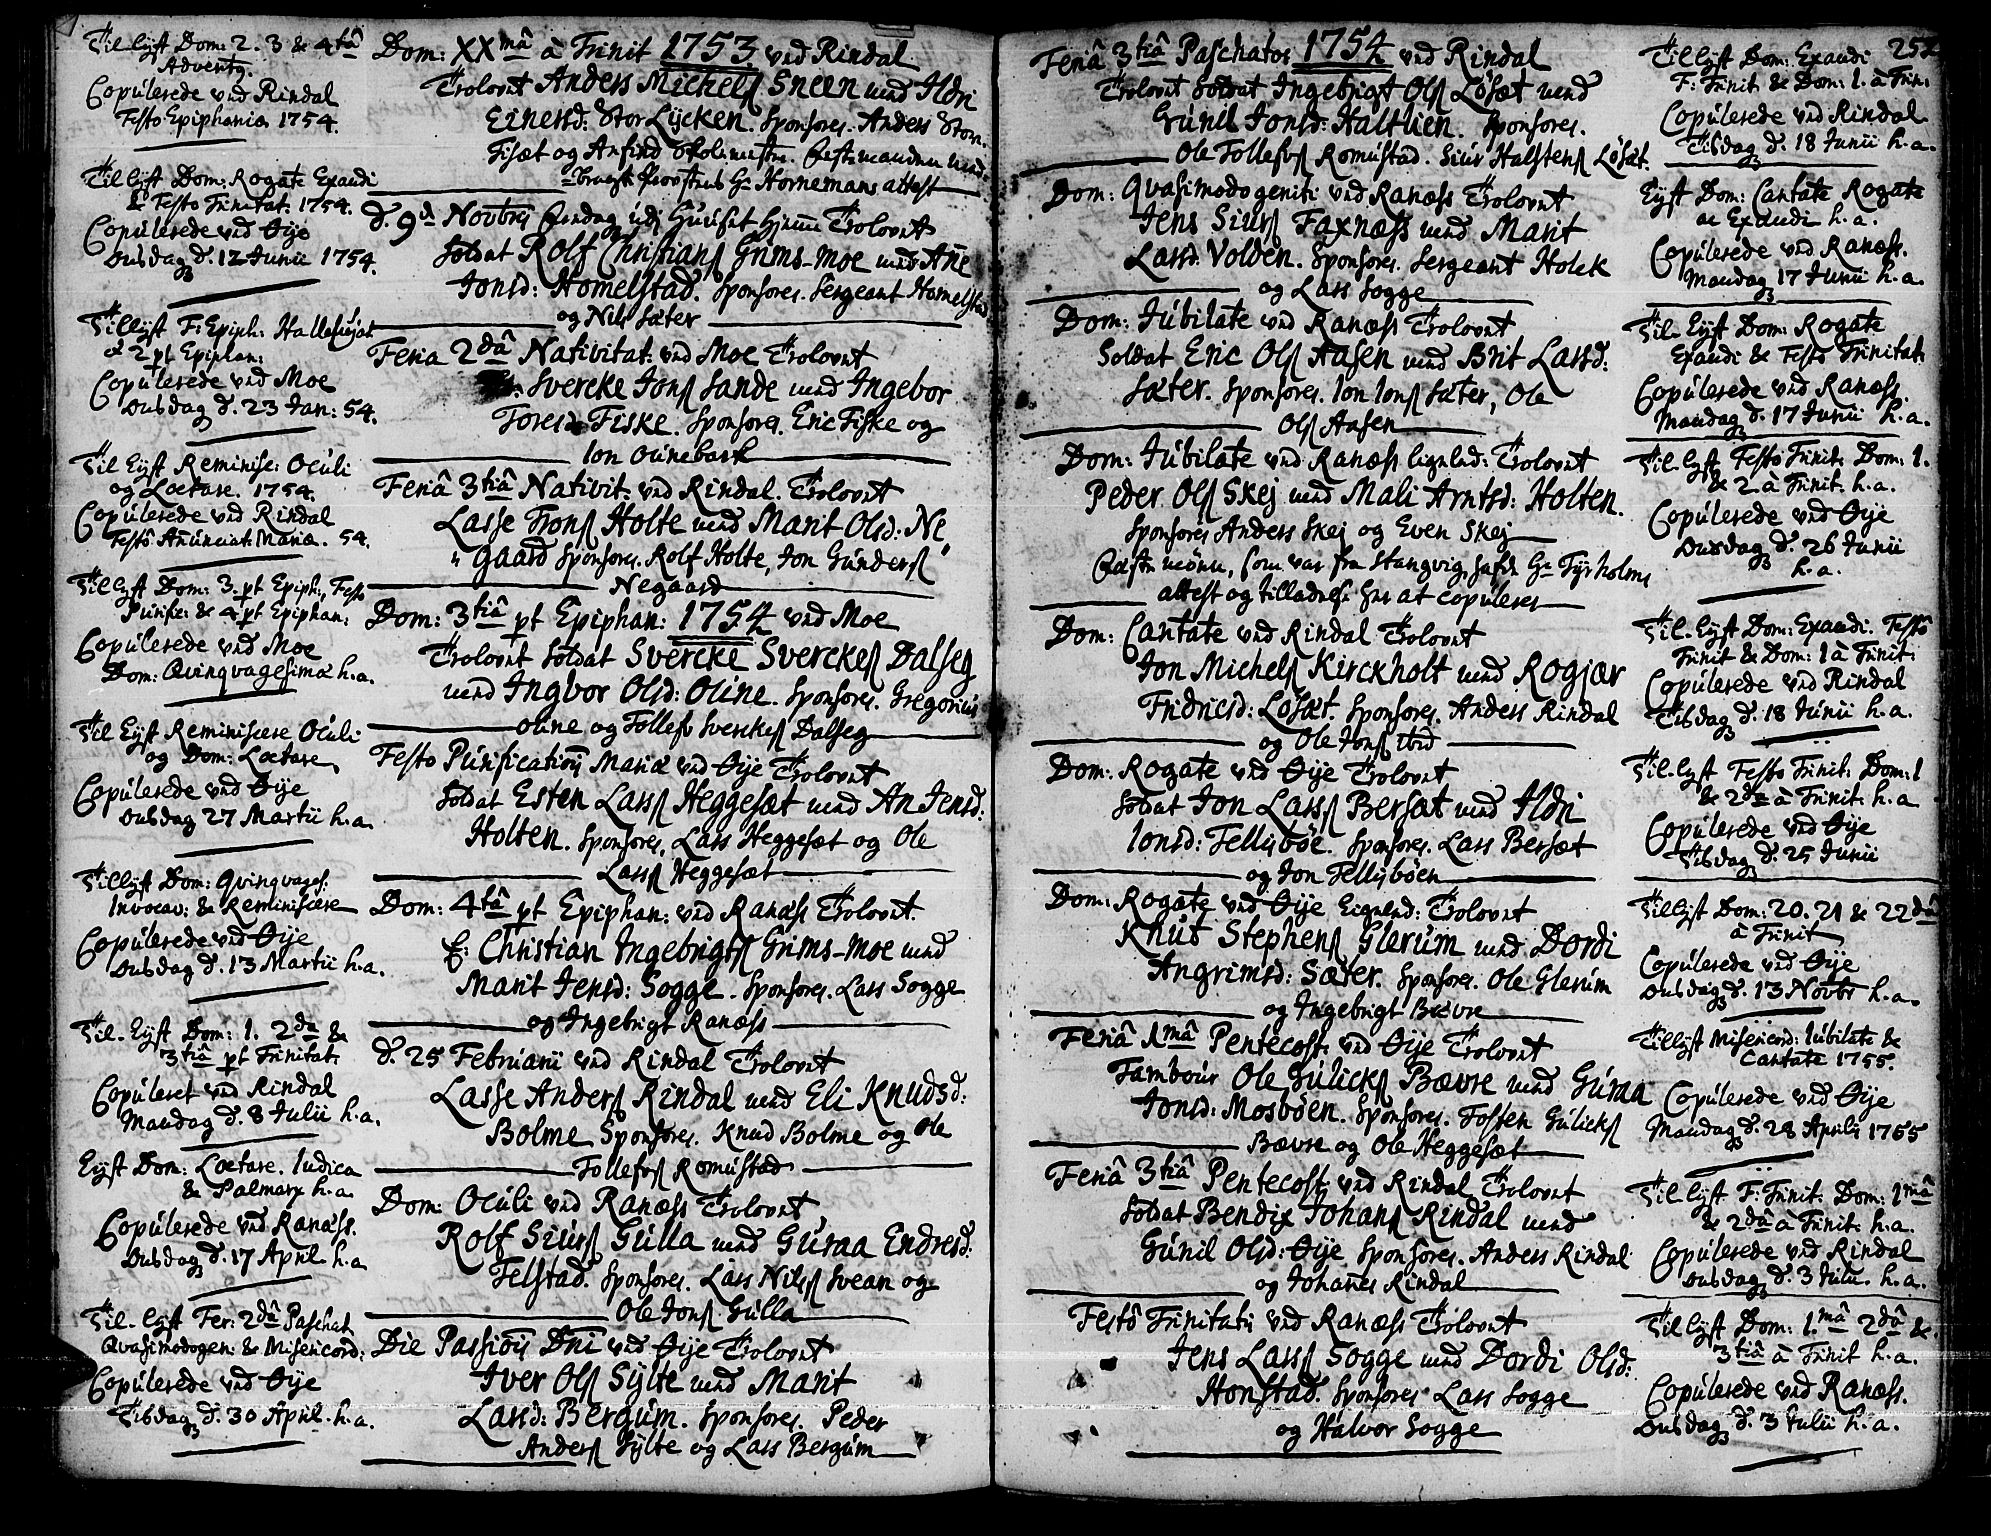 Til lyst Dom: 2. 3 & 4tâ
Adventq.
Copulerede ved Rindal
Festo Epiphaniæ 1754.
Til lyst Dom: Rogate Exaudi
& Festo Trinitat: 1754.
Copulerede ved Øije
Onsdag d. 12 Junii 1754.
Tillyst F: Epiph:
& 2 pt Epiphan:
Copulerede ved Moe
Onsdag d. 23 Jan: 54.
Til Lyst Reminisc: Oculi
og Lætare. 1754.
Copulerede ved Rindal
Festô Anunciat: Mariæ. 54.
Tillyst Dom: 3. pt Epiph., Festo
Purific: & 4 pt Epiphan:
Copulerede ved Moe
Dom: Qvinqvagesimæ h.a.
Til Lyst Reminiscere Oculi
og Dom: Lætare
Copulerede ved Øije
Onsdag 27 Martii h.a.
Tillyst Dom: Qvinqvages:
Invocav: & Reminiscere
Copulerede ved Øije
Onsdag d. 13 Martii h.a.
Til. Lyst Dom: 1. 2da &
3tiâ pt Trinitat:
Copuleret ved Rindal
Mandag d. 8 Julii h.a.
Lyst Dom: Lætare. Iudica
& Palmarx h.a.
Copulerede ved Ranæss.
Onsdag d. 17 April h.a
Til. lyst Fer: 2dâ Paschat
Qvasimodogen: & Misericord:
Copulerede ved Øije
Tisdag d. 30 April. h.a.
Dom: XXmâ à Trinit 1753 ved Rindal
Trolovet Anders Michelſ Sneen med Ildri
Einersd: Stor Lycken. Sponsores. Anders Stor-
Tisæt og Anfind Skolemestr.
Provstens Hr Hornemans attest
d. 9d Novbris Trolovet
Soldat Rolf Christianſ Grims-moe med Ane
Jonsd: Homelstad. Sponsores. Sergeant Homelstad
og Nils Sæter
Feria 2dâ Nativitat: ved Moe Trolovet
Svercke Jonſ Sande med Ingebor
Toresd: Fiske. Sponsores. Eric Fiske og
Ion Ounebark
Feriâ 3tiâ Nativit. ved Rindal. Trolovet
Lasse Tronſ Holte med Marit Olsd: Ne
" gaard Sponsores. Rolf Holte, Jon Gunderſ "
Negaard
Dom: 3tiâ pt Epiphan: 1754 ved Moe
Trolovet Soldat Svercke Sverckeſ Dalseg
med Ingbor Olsd: Oline. Sponsores. Gregorius
oline og Tollef Sverckeſ Dalseg
Festo Purificationis Mariæ ved Øije Trolovet
Soldat Esten Larsſ Heggesæt med An Jensd:
Holten. Sponsores. Lars Heggesæt og Ole
Larsſ Heggesæt
Dom: 4tâ pt Epiphan: ved Ranæss Trolovet.
Christian Ingebrigtſ Grims-moe med
Marit Jensd: Sogge. Sponsores. Lars Sogge
og Ingebrigt Ranæss
d. 25 Februarii ved Rindal Trolovet
Lasse Andersſ Rindal med Eli Knudsd:
Bolme Sponsores. Knud Bolme og Ole
Tollefſ Romustad
Dom: Oculi ved Ranæss Trolovet
Rolf Siursſ Gulla med Guraa Endresd:
Telstad. Sponsores. Lars Nilsſ Svean og
Ole Jonſ Gulla
Die Passionis Dni ved Øije Trolovet
Iver Olſ Sylte med Marit
Larsd: Bergum. Sponsores. Peder
Andersſ Sylte og Lars Bergum
Feriâ 3tiâ Paschatos 1754 ved Rindal
Trolovet Soldat Ingebrigt Olſ Løsæt med
Gunil Jonsd: Haltlien. Sponsores.
Ole Tollefsſ Romustad. Siur Halstensſ Løsæt.
Dom: Qvasimodogeniti ved Ranæss Trolovet
Jens Siursſ Faxnæss med Marit
Larsd. Volden. Sponsores. Sergeant Holck
og Lars Sogge
Dom: Jubilate ved Ranæss Trolovet
Soldat Eric Olſ Aasen med Brit Larsd:
Sæter. Sponsores. Ion Ionſ Sæter, Ole
Olſ Aasen
Dom: Jubilate ved Ranæss ligeled: Trolovet
Peder Olſ Skej med Mali Arntsd: Holten.
Sponsores Anders Skej og Even Skej
som var fra Stangvig, hafde Hr Tyrholms
attest og tilladelse her at copuleres
Dom: Cantate ved Rindal Trolovet
Jon Michelſ Kirckholt med Rogjær
Fridricsd: Løsæt. Sponsores. Anders Rindal
og Ole Jonſ ibid
Dom: Rogate ved Øije Trolovet
Soldat Jon Larsſ Bersæt med Ildri
Ionsd: Tellisbøe. Sponsores. Lars Bersæt
og Jon Tellisbøen
Dom: Rogate ved Øije Ligeled: Trolovet
Knut Stephensſ Glerum med Dordi
Angrimsd: Sæter. Sponsores. Ole Glerum
og Ingebrigt Bævre
Feriâ 1mâ Pentecost. ved Øije Trolovet
Tambour Ole Gulicksſ Bævre med Guraa
Jonsd: Mosbøen. Sponsores. Tosten Gulicksſ
Bævre og Ole Heggesæt
Feriâ 3tiâ Pentecost. ved Rindal Trolovet
Soldat Bendix Johanſ Rindal med
Gunil Olsd: Øije Sponsores. Anders Rindal
og Johanes Rindal
Festô Trinitatis ved Ranæss Trolovet
Jens Larsſ Sogge med Dordi Olsd:
Honstad. Sponsores Lars Sogge
og Halvor Sogge
Til lyst Dom: Exaudi 252
F: Trinit & Dom: 1. à Trin:
Copulerede ved Rindal
Tisdag d. 18 Junii h.a.
Lyst Dom: Cantate Rogate
ac Exaudi h.a.
Copulerede ved Ranæss.
Mandag 17 Junii h.a.
Til. Lyst Dom: Rogate
Exaudi & Festô Trinitat:
Copulerede ved Ranæss.
Mandag d. 17 Junii h.a.
Til. lyst Festo Trinit: Dom: 1.
& 2. à Trinit. h.a.
Copulerede ved Øije
Onsdag d. 26 Junii
h.a.
Til. Lyst Dom: Exaudi. Festô
Trinit & Dom: 1 à Trinit:
Copulerede ved Rindal
Tisdag d. 18 Junii h.a.
Til. lyst Festo Trinit: Dom: 1
& 2da à Trinit: h.a
Copulerede ved Øije
Tisdag d. 25 Junii
Tillyst Dom: 20. 21 & 22dâ
à Trinit
Copulerede ved Øije
Onsdag d. 13 Novbr h.a.
Tillyst Misericord: Iubilate &
Cantate 1755.
Copulerede ved Øije
Mandag d. 28 Aprilis 1755
Til lyst F: Trinit: Dom: 1mâ
& 2dâ à Trinit. h.a.
Copulerede ved Rindal
Onsdag d. 3 Julii. h.a.
Til lyst Dom: 1.mâ 2dâ &
3tiâ à Trinit h.a.
Copulerede ved Ranæss.
Onsdag d. 3 Julii h.a.